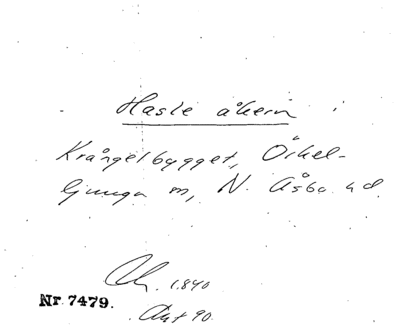 Hasle åkern i
Krångelbygget, Örkel-
ljunga m, N. Åsbo hd
1.840
Nr. 7479.
90.